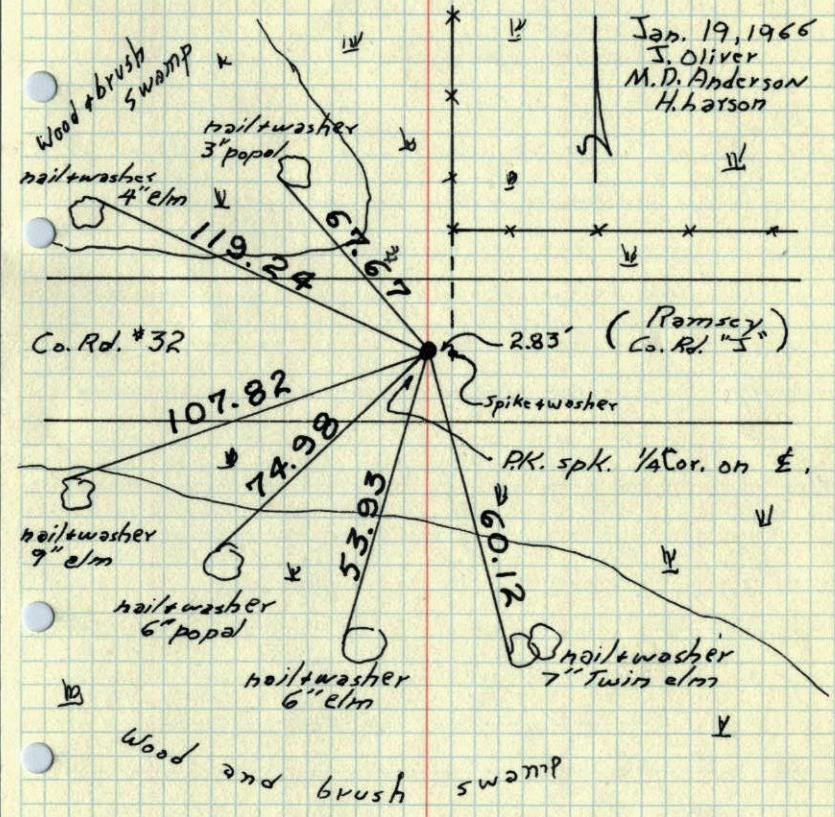 Jan. 19, 1966
J. Oliver
M.D. Anderson
H. Larson
Wood & brush
swamp
nail & washer
3" popal
nail & washer
4" elm
67.67
119.24
Co. Rd. #32
2.83'
(Ramsey
Co. Rd. "J")
spike & washer
107.82
74.98
53.93
60.12
P.K. spk. 1/4 Cor. on ℄.
nail & washer
9" elm
nail & washer
6" popal
nail & washer
6" elm
nail & washer
7" Twin elm
Wood and brush swamp